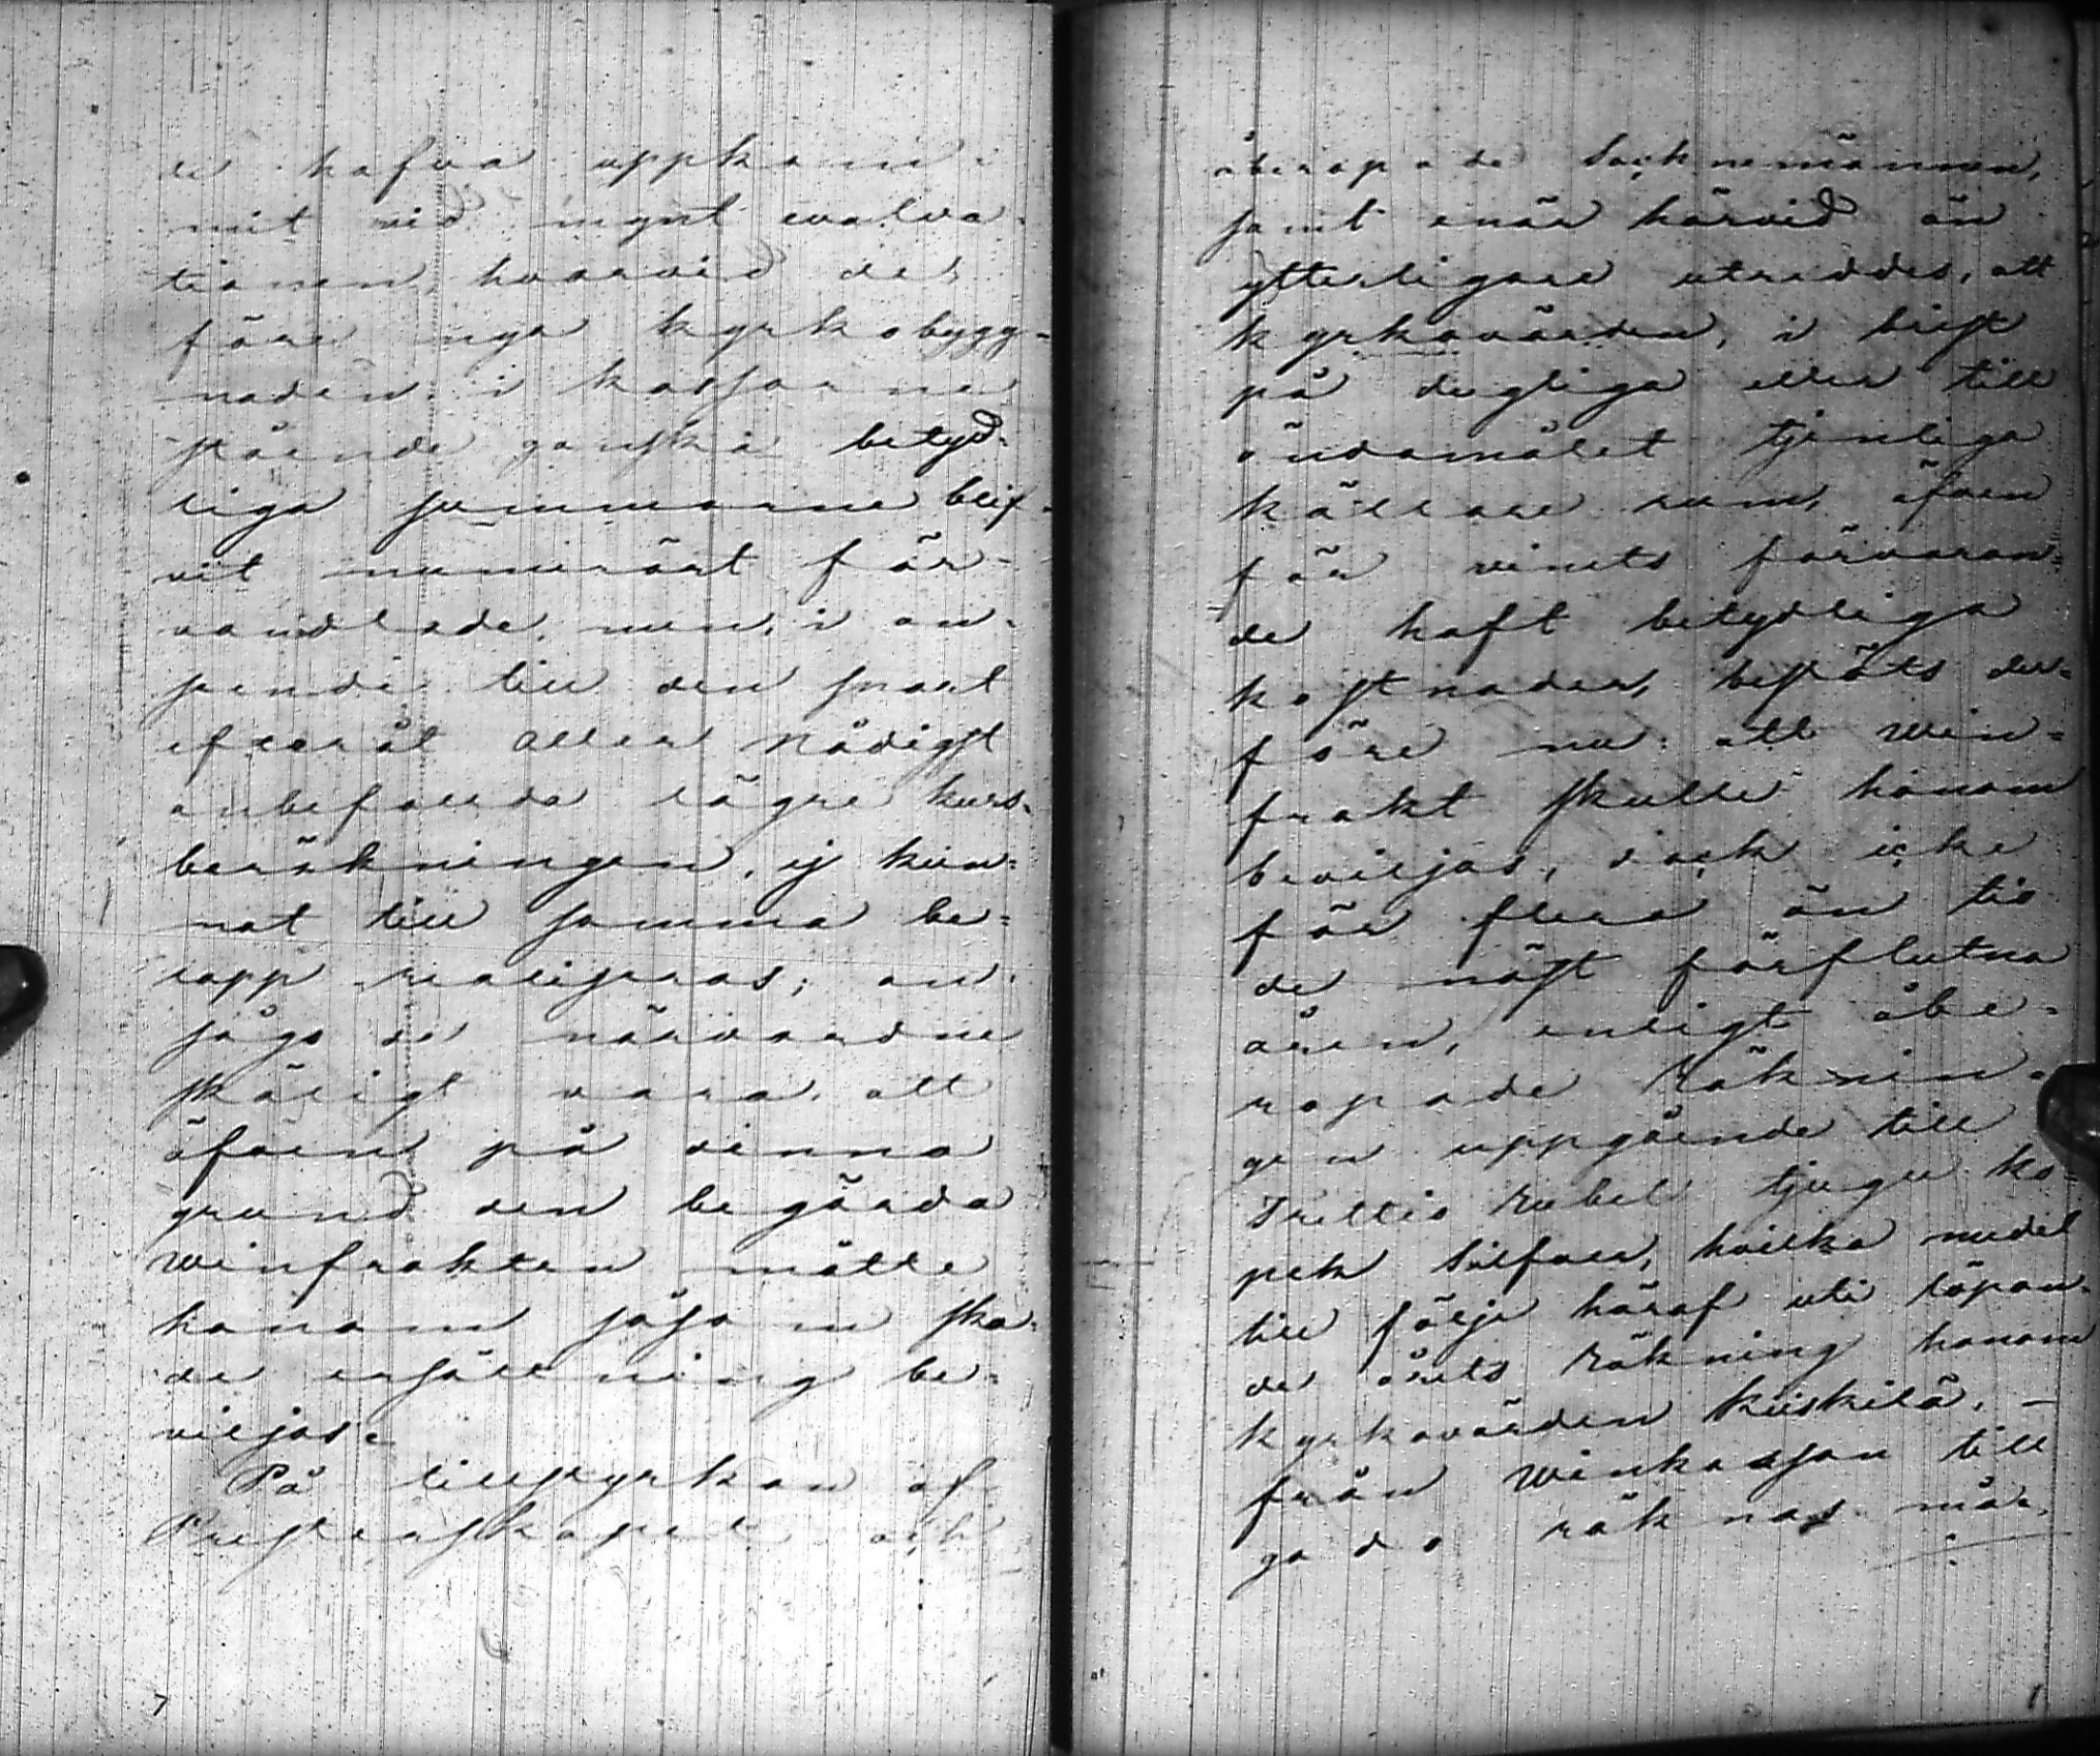 de hafva uppkom=
mit vid mynt evalva=
tionen, hvarvid de
före nya kyrkobygg=
naden i kassorne
stående ganska betyd=
liga summorne blif=
vit numerärt för=
vandlade, men, i an=
seende till den snart
efteråt aller Nådigst
anbefallda lägre kurs=
beräkningen, ej kun=
nat till samma be=
lopp realiseras; an=
sågs de närvardne
skäligt vara, att
äfven på denna
grund den begärda
winfrakten måtte
honom såsom ska=
de ersättning be=
viljas.
På tillstyrkan af
Presterskapet och
åberopade Socknemännen,
samt enär härvid än
ytterligare utreddes, att
kyrkovärden, i brist
på dugliga eller till
ändamålet tjenliga
källare rum, äfven
för vinets förvaran=
de haft betydliga
kostnader, beslöts der=
före nu: att win=
frakt skulle honom
beviljas, dock icke
för flera än tio
de näst förflutna
åren, enligt åbe=
ropade Räknin=
gen uppgående till
Trettio Rubel tjugu ko=
pek Silfver, hvilka medel
till följe häraf uti löpan=
de årets Räkning honom
kyrkovärden Kiiskilä, –
från Winkassan till
godo räknas mån=